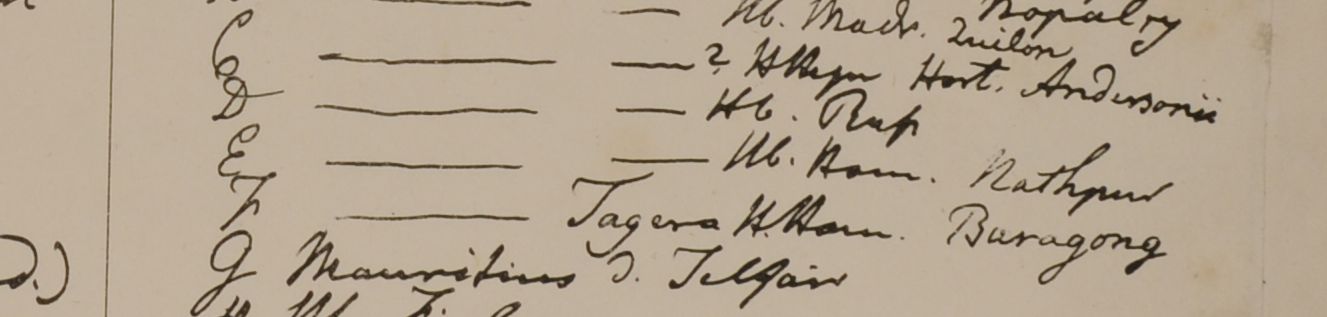 Hb. Madr. Nopalry
C ——— — ? HHeyn Quilon Hort. Andersonii
D ——— — Hb. Rusf
E ——— — Hb. Ham. Nathpur
F ——— Tagera H.Ham. Baragong
G Mauritius d. Telfair
D.)